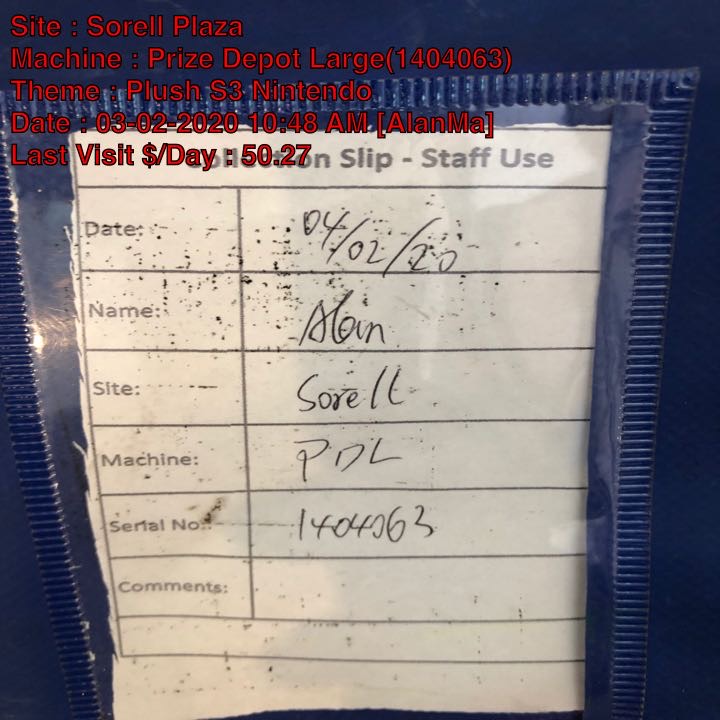 Site : Sorell Plaza
Machine : Prize Depot Large(1404063)
Theme : Plush S3 Nintendo
Date : 03-02-2020 10:48 AM [AlanMa]
Last Visit $/Day : 50.27
Collection Slip - Staff Use
Date: 04/02/20
Name: Alan
Site: Sorell
Machine: PDL
Serial No.: 1404063
Comments: